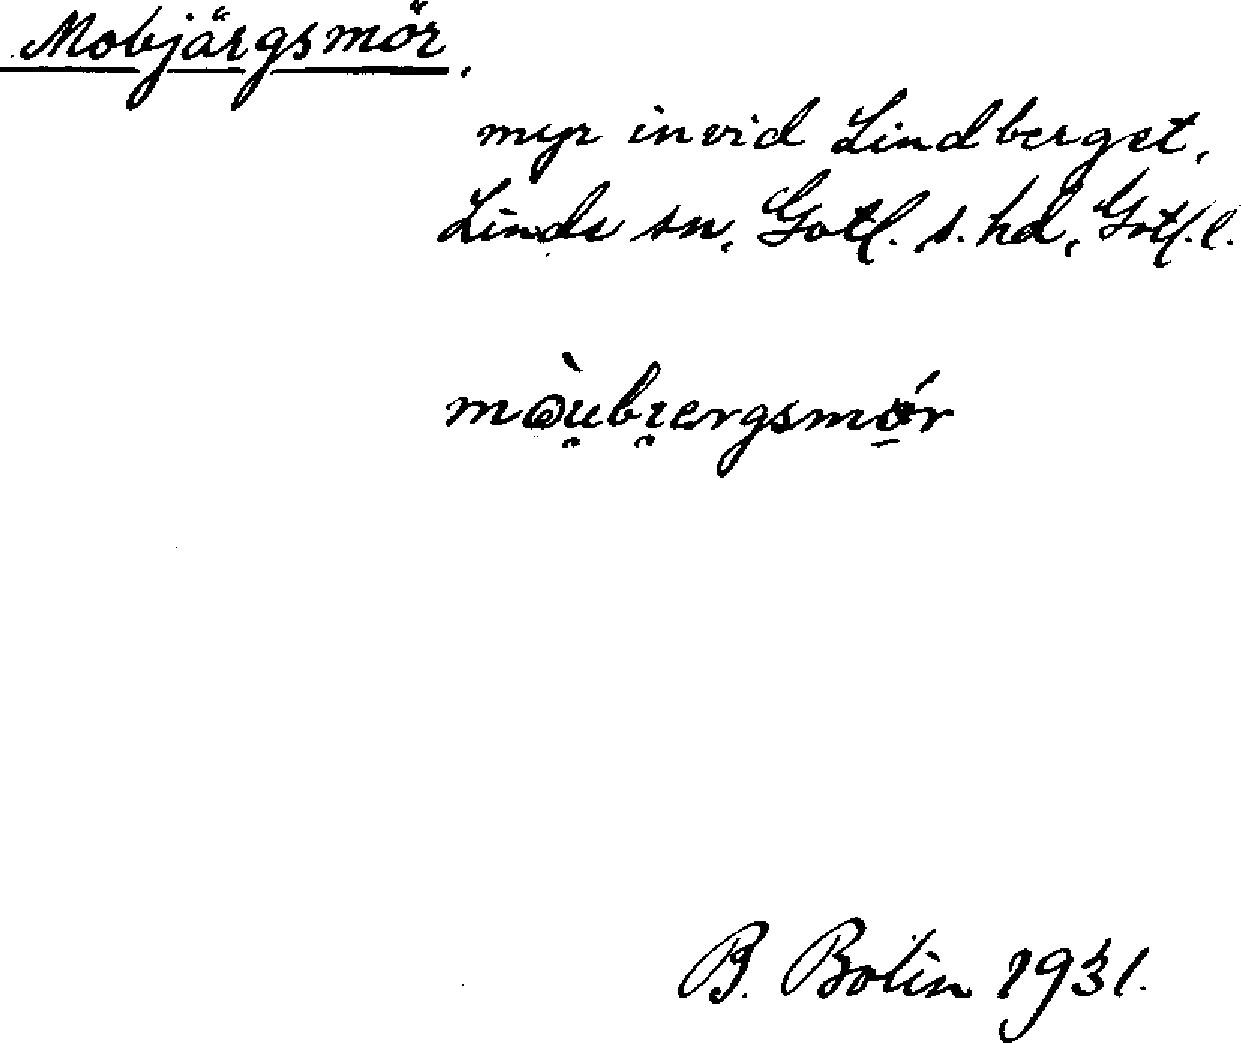 Mobjärgsmör.
myr invid Lindberget,
Linde sn, Gotl. s. hd, Gotl. l.
mòu̯bi̯ergsmó̱r
B. Bolin 1931.